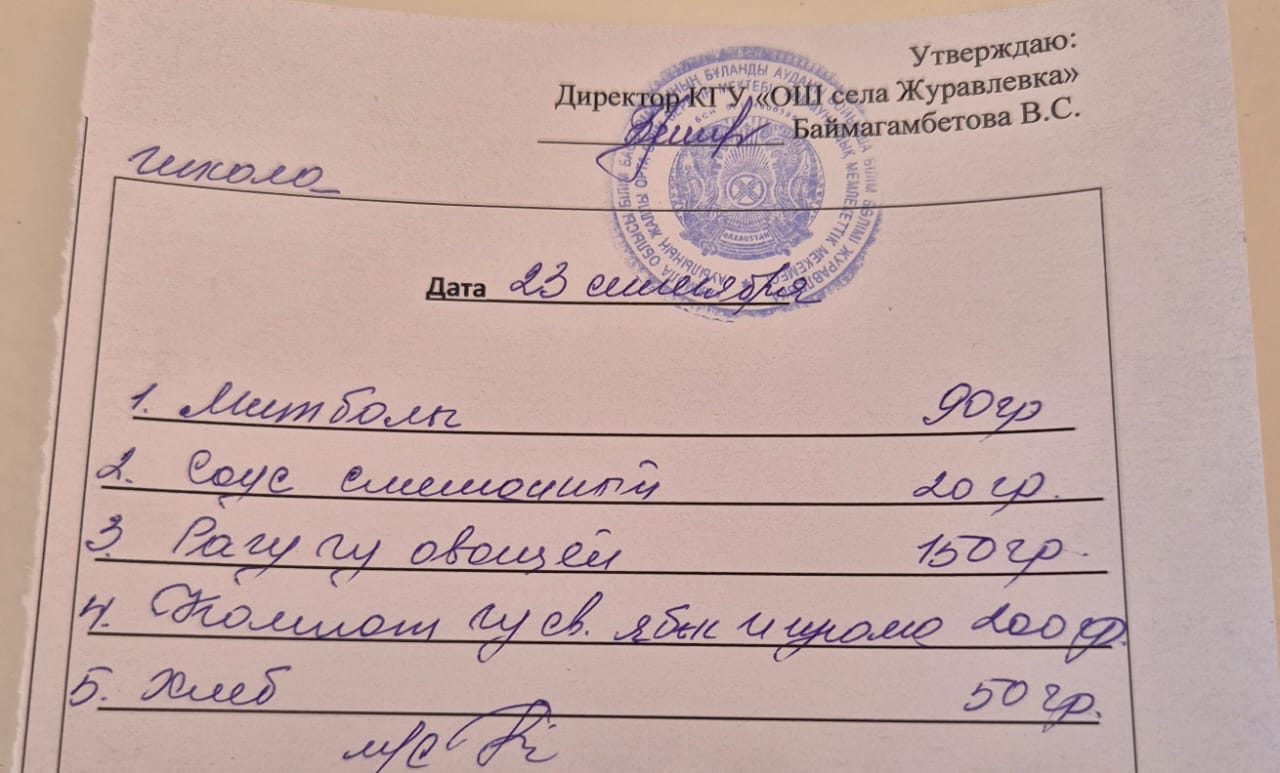 Утверждаю:
Директор КГУ «ОШ села Журавлевка»
Баймагамбетова В.С.
школа
Дата 23 сентября
1. Митболы 90гр
2. Соус сметанный 20гр.
3. Рагу из овощей 150гр.
4. Компот из св. яблок и 200гр.
5. Хлеб 50гр.
м/с
QAZAQSTAN